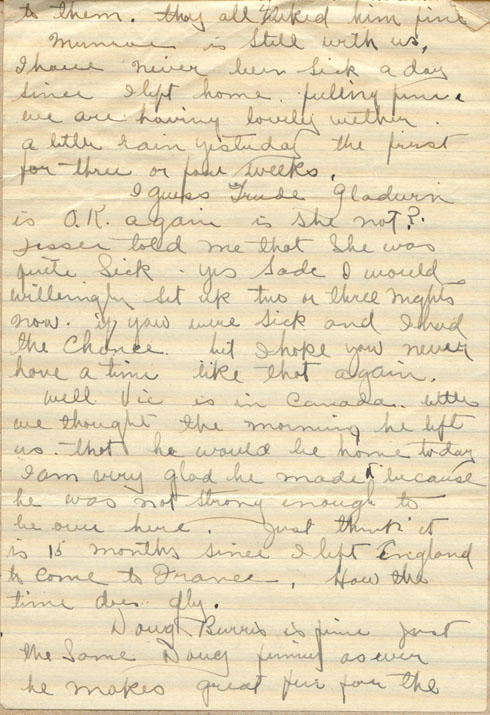 to them. they all liked him fine
Munroe is still with us,
I have never been sick a day
since I left home. fulling fine.
we are having lovely wether.
a little rain yesturday the first
for three or four weeks.
I guess Trude Gladwin
is O.K. again is she not?
Jesser told me that she was
quite sick. yes Sade I would
willeingly set up two or three nights
now. if you were sick and I had
the chance. but I hope you never
have a time like that again.
well Vic is in Canada. little
we thought the morning he left
us. that he would be home today
I am very glad he made it because
he was not strong enough to
be over here. Just think it
is 15 months since I left England
to come to France. How the
time does fly.
Doug Burris is fine just
the same Doug funny as ever
he makes great fun for the